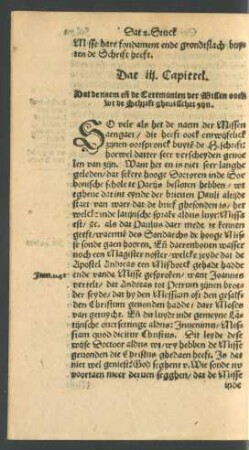 Dat 2. Stuck
Misse hare fondament ende grondtslach buy-
ten de Schrift heeft.
Dat iij. Capittel.
Dat de naem en̄ de Ceremonien der Missen oock
wt de Schrift ghenestelt zijn.
SO vele als het de naem der Missen
aengaet, die heeft oock eenwijfelick
zijnen oorspronck buytē de H. schrift:
hoewel datter seer verscheyden ghevoe-
len van zijn. Want het en is niet seer langhe
geleden, dat sekere hooge Doctoren inde Sor-
bonische schole te Parijs besloten hebben, wt
eghene dat int eynde der brieven Pauli altijdt
staet van waer dat de brief ghesonden is, her
welck inde latijnsche sprake aldus luyt Missa
est, &c. als dat Paulus daer mede te kennen
geeft, waermē den Sendtbrief de hooge Misse
sonde gaen hooren. En̄ daerenboven wasser
noch een Magister noster, welcke seyde dat de
Apostel Andreas een Misboeck gehadt hadde
ende vande Misse gesproken, want Joannes
vertelt, dat Andreas tot Petrum zijnen broe-
der seyde, dat hy den Messiam oft den gesalf-
den Christum gevonden hadde, daer Moses
van gheruycht. En̄ dit luydt inde gemeyne La-
tijnsche oversettinge aldus: Invenimus, Mes-
siam quod dicitur Christus. Dit leydt dese
wijse Doctoor aldus wt, wy hebben de Misse
gevonden die Christus ghedaen heeft. Is dat
niet wel geniest? God seghen u. Wie sonde nu
voortaen meer derven segghen, dat de Misse
inde
Joan. 1. 41